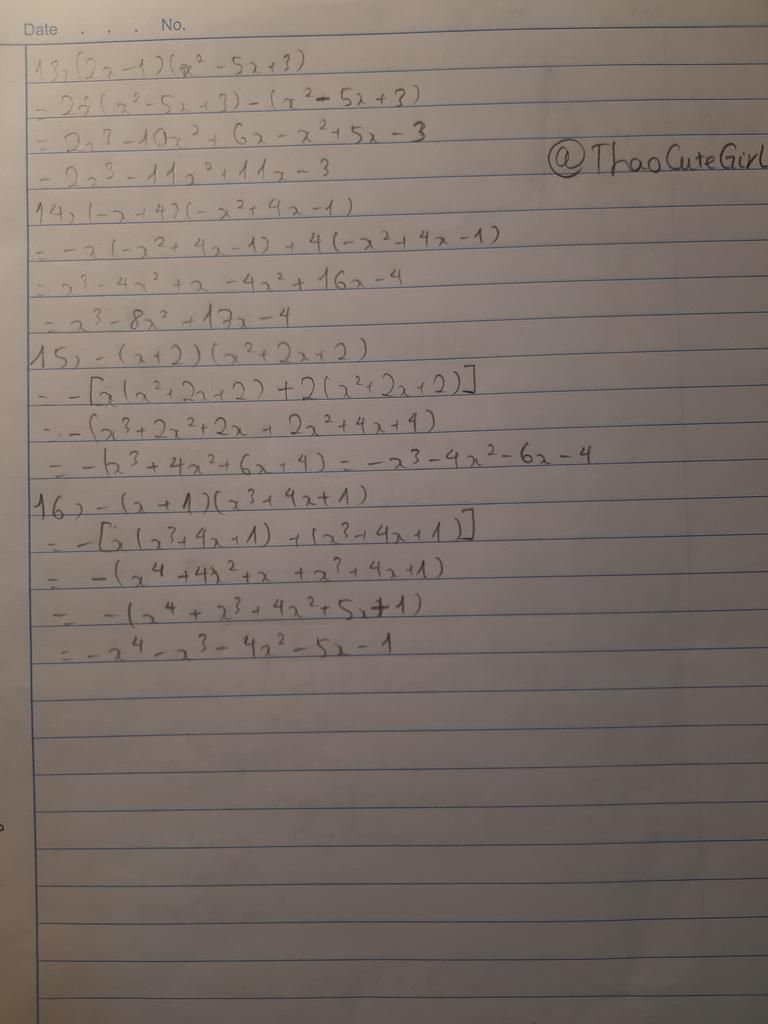 Date . . . No.
13, (2x-1)(x² - 5x+3)
= 2x(x²-5x+3) - (x² - 5x+3)
= 2x³ - 10x² + 6x - x² + 5x - 3
= 2x³ - 11x² + 11x - 3
@ThaoCuteGirl
14, (-x+4)(-x²+4x-1)
= -x(-x²+4x-1) + 4(-x²+4x-1)
= x³ - 4x² + x - 4x² + 16x - 4
= x³ - 8x² + 17x - 4
15, -(x+2)(x²+2x+2)
= -[x(x²+2x+2) + 2(x²+2x+2)]
= -(x³+2x²+2x + 2x²+4x+4)
= -(x³+4x²+6x+4) = -x³-4x²-6x-4
16, -(x+1)(x³+4x+1)
= -[x(x³+4x+1) + (x³+4x+1)]
= -(x⁴+4x²+x + x³+4x+1)
= -(x⁴ + x³ + 4x² + 5x + 1)
= -x⁴ - x³ - 4x² - 5x - 1